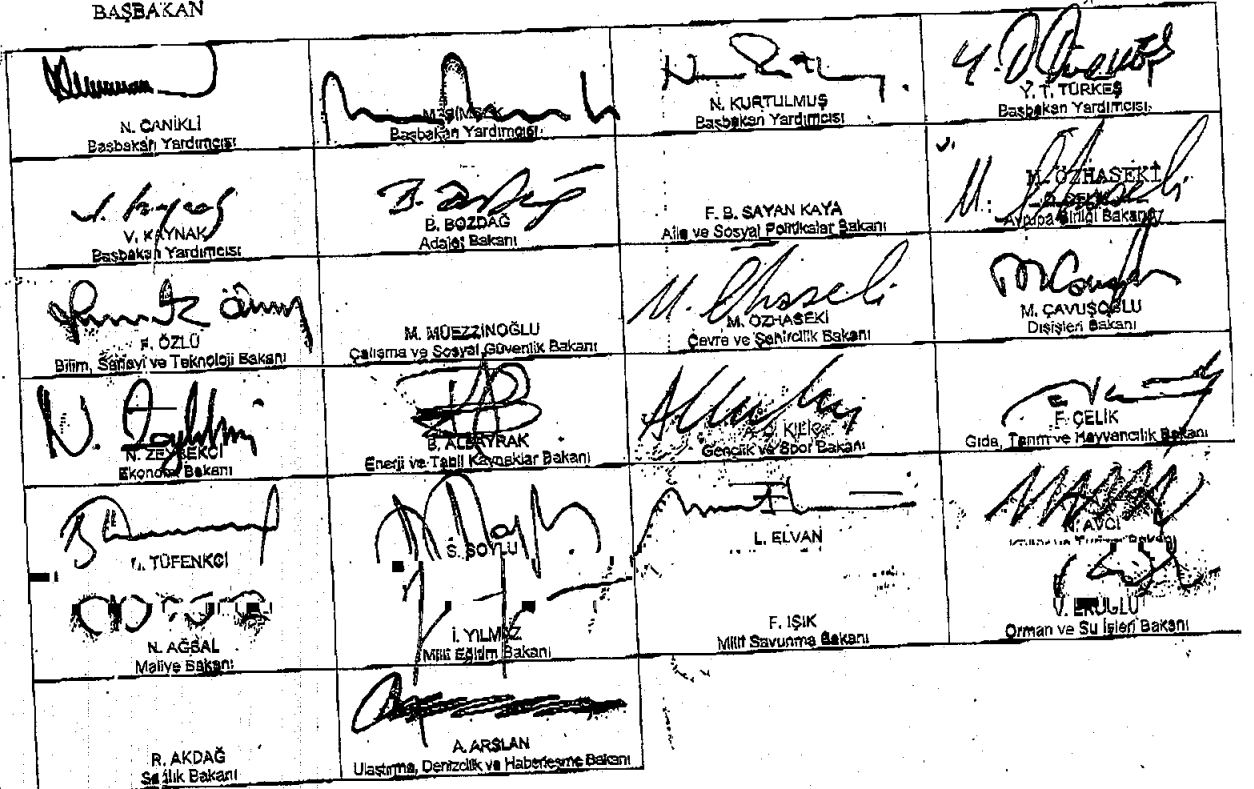 BAŞBAKAN
N. CANİKLİ
Başbakan Yardımcısı
M. ŞİMŞEK
Başbakan Yardımcısı
N. KURTULMUŞ
Başbakan Yardımcısı
Y. T. TÜRKEŞ
Başbakan Yardımcısı
V. KAYNAK
Başbakan Yardımcısı
B. BOZDAĞ
Adalet Bakanı
F. B. SAYAN KAYA
Aile ve Sosyal Politikalar Bakanı
M. ÖZHASEKİ
Avrupa Birliği Bakanı
F. ÖZLÜ
Bilim, Sanayi ve Teknoloji Bakanı
M. MÜEZZİNOĞLU
Çalışma ve Sosyal Güvenlik Bakanı
M. ÖZHASEKİ
Çevre ve Şehircilik Bakanı
M. ÇAVUŞOĞLU
Dışişleri Bakanı
N. ZEYBEKCİ
Ekonomi Bakanı
B. ALBAYRAK
Enerji ve Tabii Kaynaklar Bakanı
KILIÇ
Gençlik ve Spor Bakanı
F. ÇELİK
Gıda, Tarım ve Hayvancılık Bakanı
TÜFENKCİ
S. SOYLU
L. ELVAN
N. AVCI
N. AĞBAL
Maliye Bakanı
İ. YILMAZ
Milli Eğitim Bakanı
F. IŞIK
Milli Savunma Bakanı
V. EROĞLU
Orman ve Su İşleri Bakanı
R. AKDAĞ
Sağlık Bakanı
A. ARSLAN
Ulaştırma, Denizcilik ve Haberleşme Bakanı